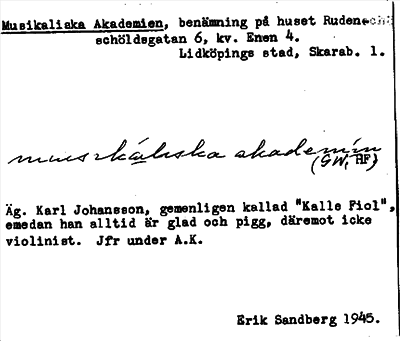 Musikaliska Akademien, benämning på huset Rudenschöldsgatan
schöldsgatan 6, kv. Enen 4.
Lidköpings stad, Skarab. l.
musikáliska akademin
(GW, RF)
Äg. Karl Johansson, gemenligen kallad "Kalle Fiol",
emedan han alltid är glad och pigg, däremot icke
violinist. Jfr under A.K.
Erik Sandberg 1945.